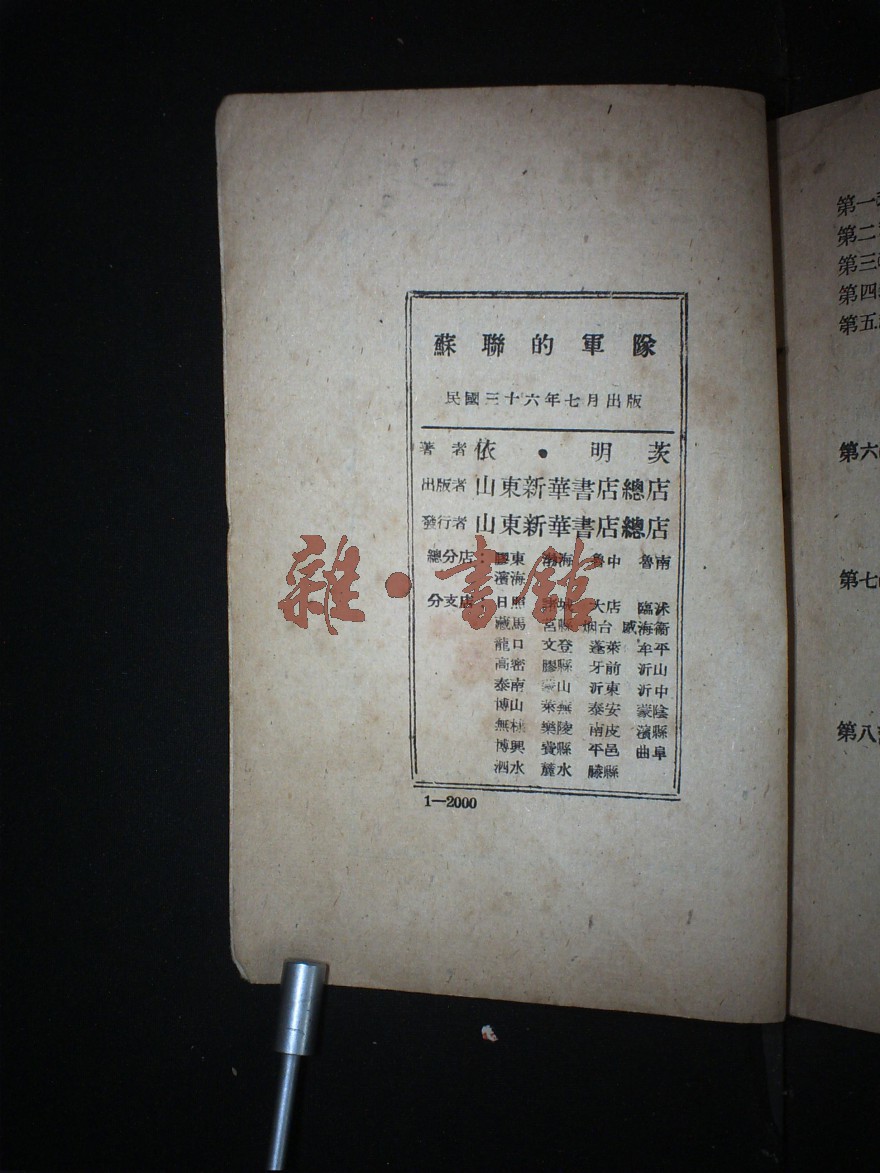 蘇聯的軍隊
民國三十六年七月出版
著者 依·明茨
出版者 山東新華書店總店
發行者 山東新華書店總店
總分店：膠東 渤海 魯中 魯南
濱海
分支店：日照 諸城 大店 臨沭
藏馬 莒縣 烟台 威海衞
龍口 文登 蓬萊 牟平
高密 膠縣 牙前 沂山
泰南 蒙山 沂東 沂中
博山 萊蕪 泰安 蒙陰
無棣 樂陵 南皮 濱縣
博興 費縣 平邑 曲阜
泗水 麓水 滕縣
1—2000
雜·書館
第一
第二
第三
第四
第五
第六
第七
第八